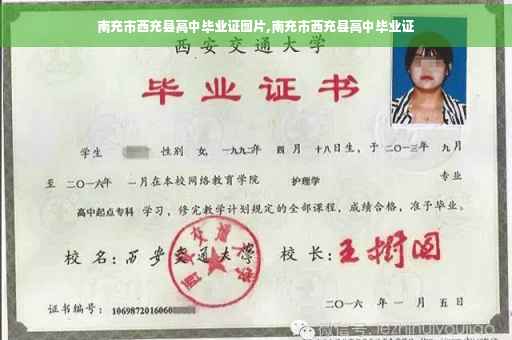 南充市西充县高中毕业证图片,南充市西充县高中毕业证
西安交通大学
毕业证书
学生 性别 女, 一九九二年 四月 十八日生, 于 二〇一三年 九月
至 二〇一六年 一月在本校网络教育学院 护理学 专业
高中起点专科 学习, 修完教学计划规定的全部课程, 成绩合格, 准予毕业。
校 名: 西安交通大学 校 长: 王树国
西安交通大学
证书编号: 1069872016060
二〇一六 年 一 月 五 日
微信号: jiezhinuiyoujiao